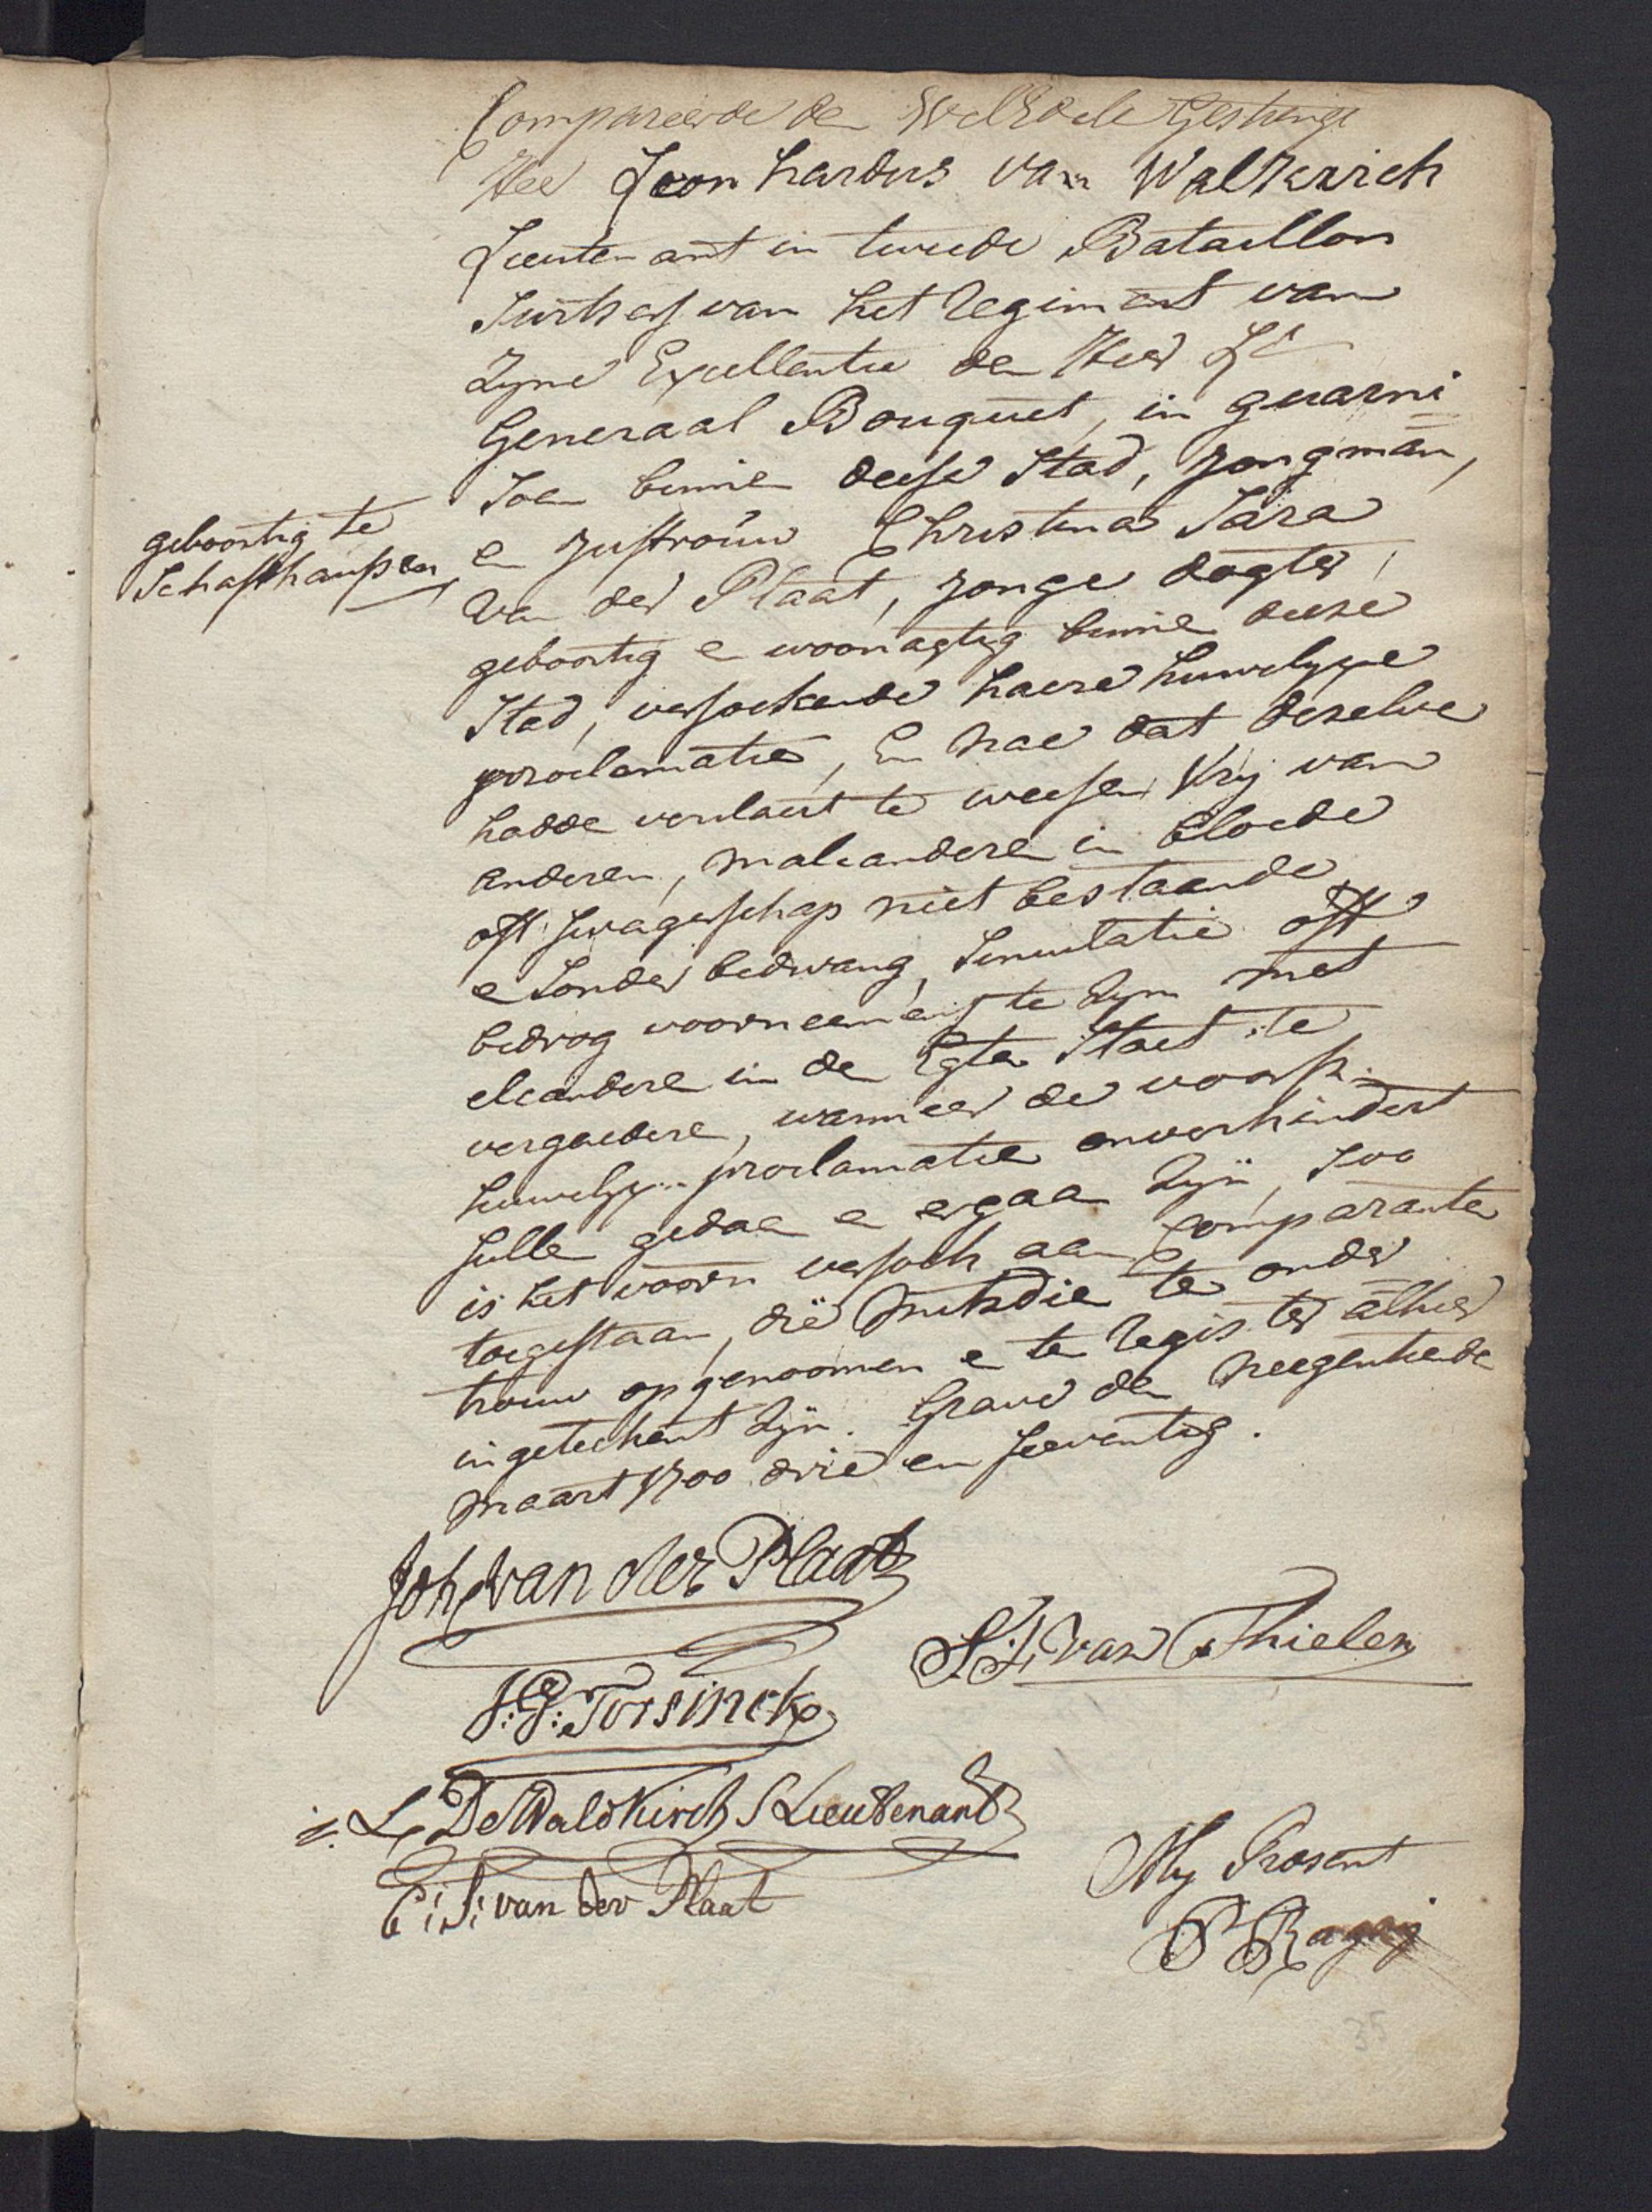 Compareerde den WelEdele Gestrenge
Hee Leonhardus van Waltkirich
Lieutenant in tweede Bataillon
Switsers van het Regiment van
Zyne Excellentie den Heer Lt
Generaal Bouquet, in guarni
soen binnen deese Stad, Jongman,
geboortig te
Schaffhaussen
en Juffrouw Christina Sara
van der Plaat, Jonge dogter,
geboortig en woonagtig binnen deese
Stad, versoekende haere huwelyxe
proclamatie, En nae dat deselve
hadde verclaert te weesen Vry van
anderen, malcanderen in bloede
oft swagerschap niet bestaende
en sonder bedwang, Simulatie oft
bedrog voorneemens te zyn met
elcandere in de Egten Staet te
vergaedere, wanneer de voorsz.
huwelyx proclamatie onverhindert
sulle gedaen en ergaan zyn, soo
is het voorn versoek aen Comparanten
toegestaan, die mitsdien te onder
trouw opgenoomen en te Register alhier
ingeteekent zyn. Grave den Neegentiende
maart 1700 drie en seeventig.
Joh van der Plaat
S: L: van Thielen
J: G: Torsinck
L De Waldkirch S Lieutenant
C: S: van der Plaat
My Present
P Ragay
35